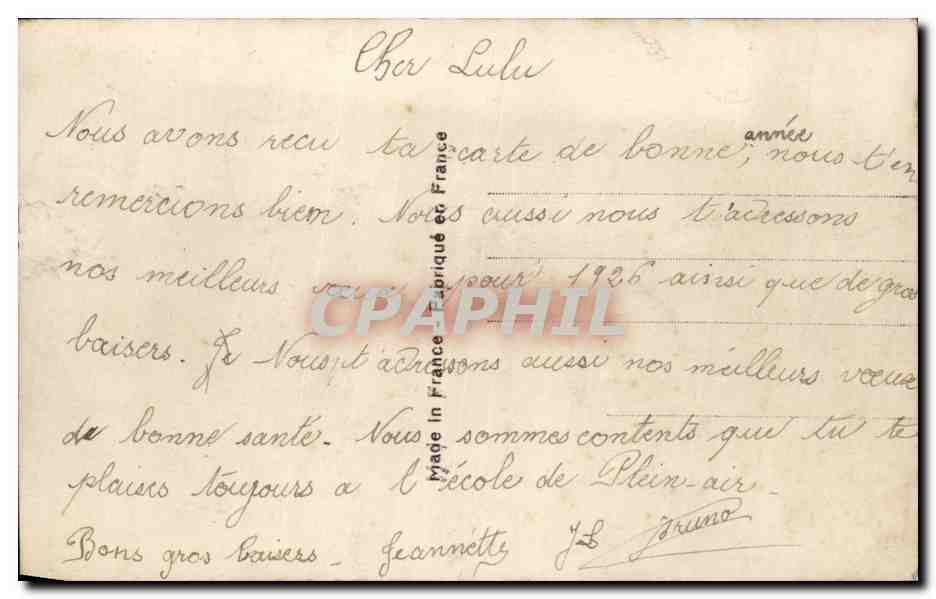 Cher Lulu
Nous avons recu ta carte de bonne année, nous t'en
remercions bien. Nous aussi nous t'adressons
nos meilleurs pour 1926 ainsi que de gros
baisers. Nous t'adressons aussi nos meilleurs voeux
de bonne santé. Nous sommes contents que tu te
plaises toujours a l'école de Plein-air_
Bons gros baisers_ Jeannette Bruno
Made in France - Fabriqué en France
CPAPHIL